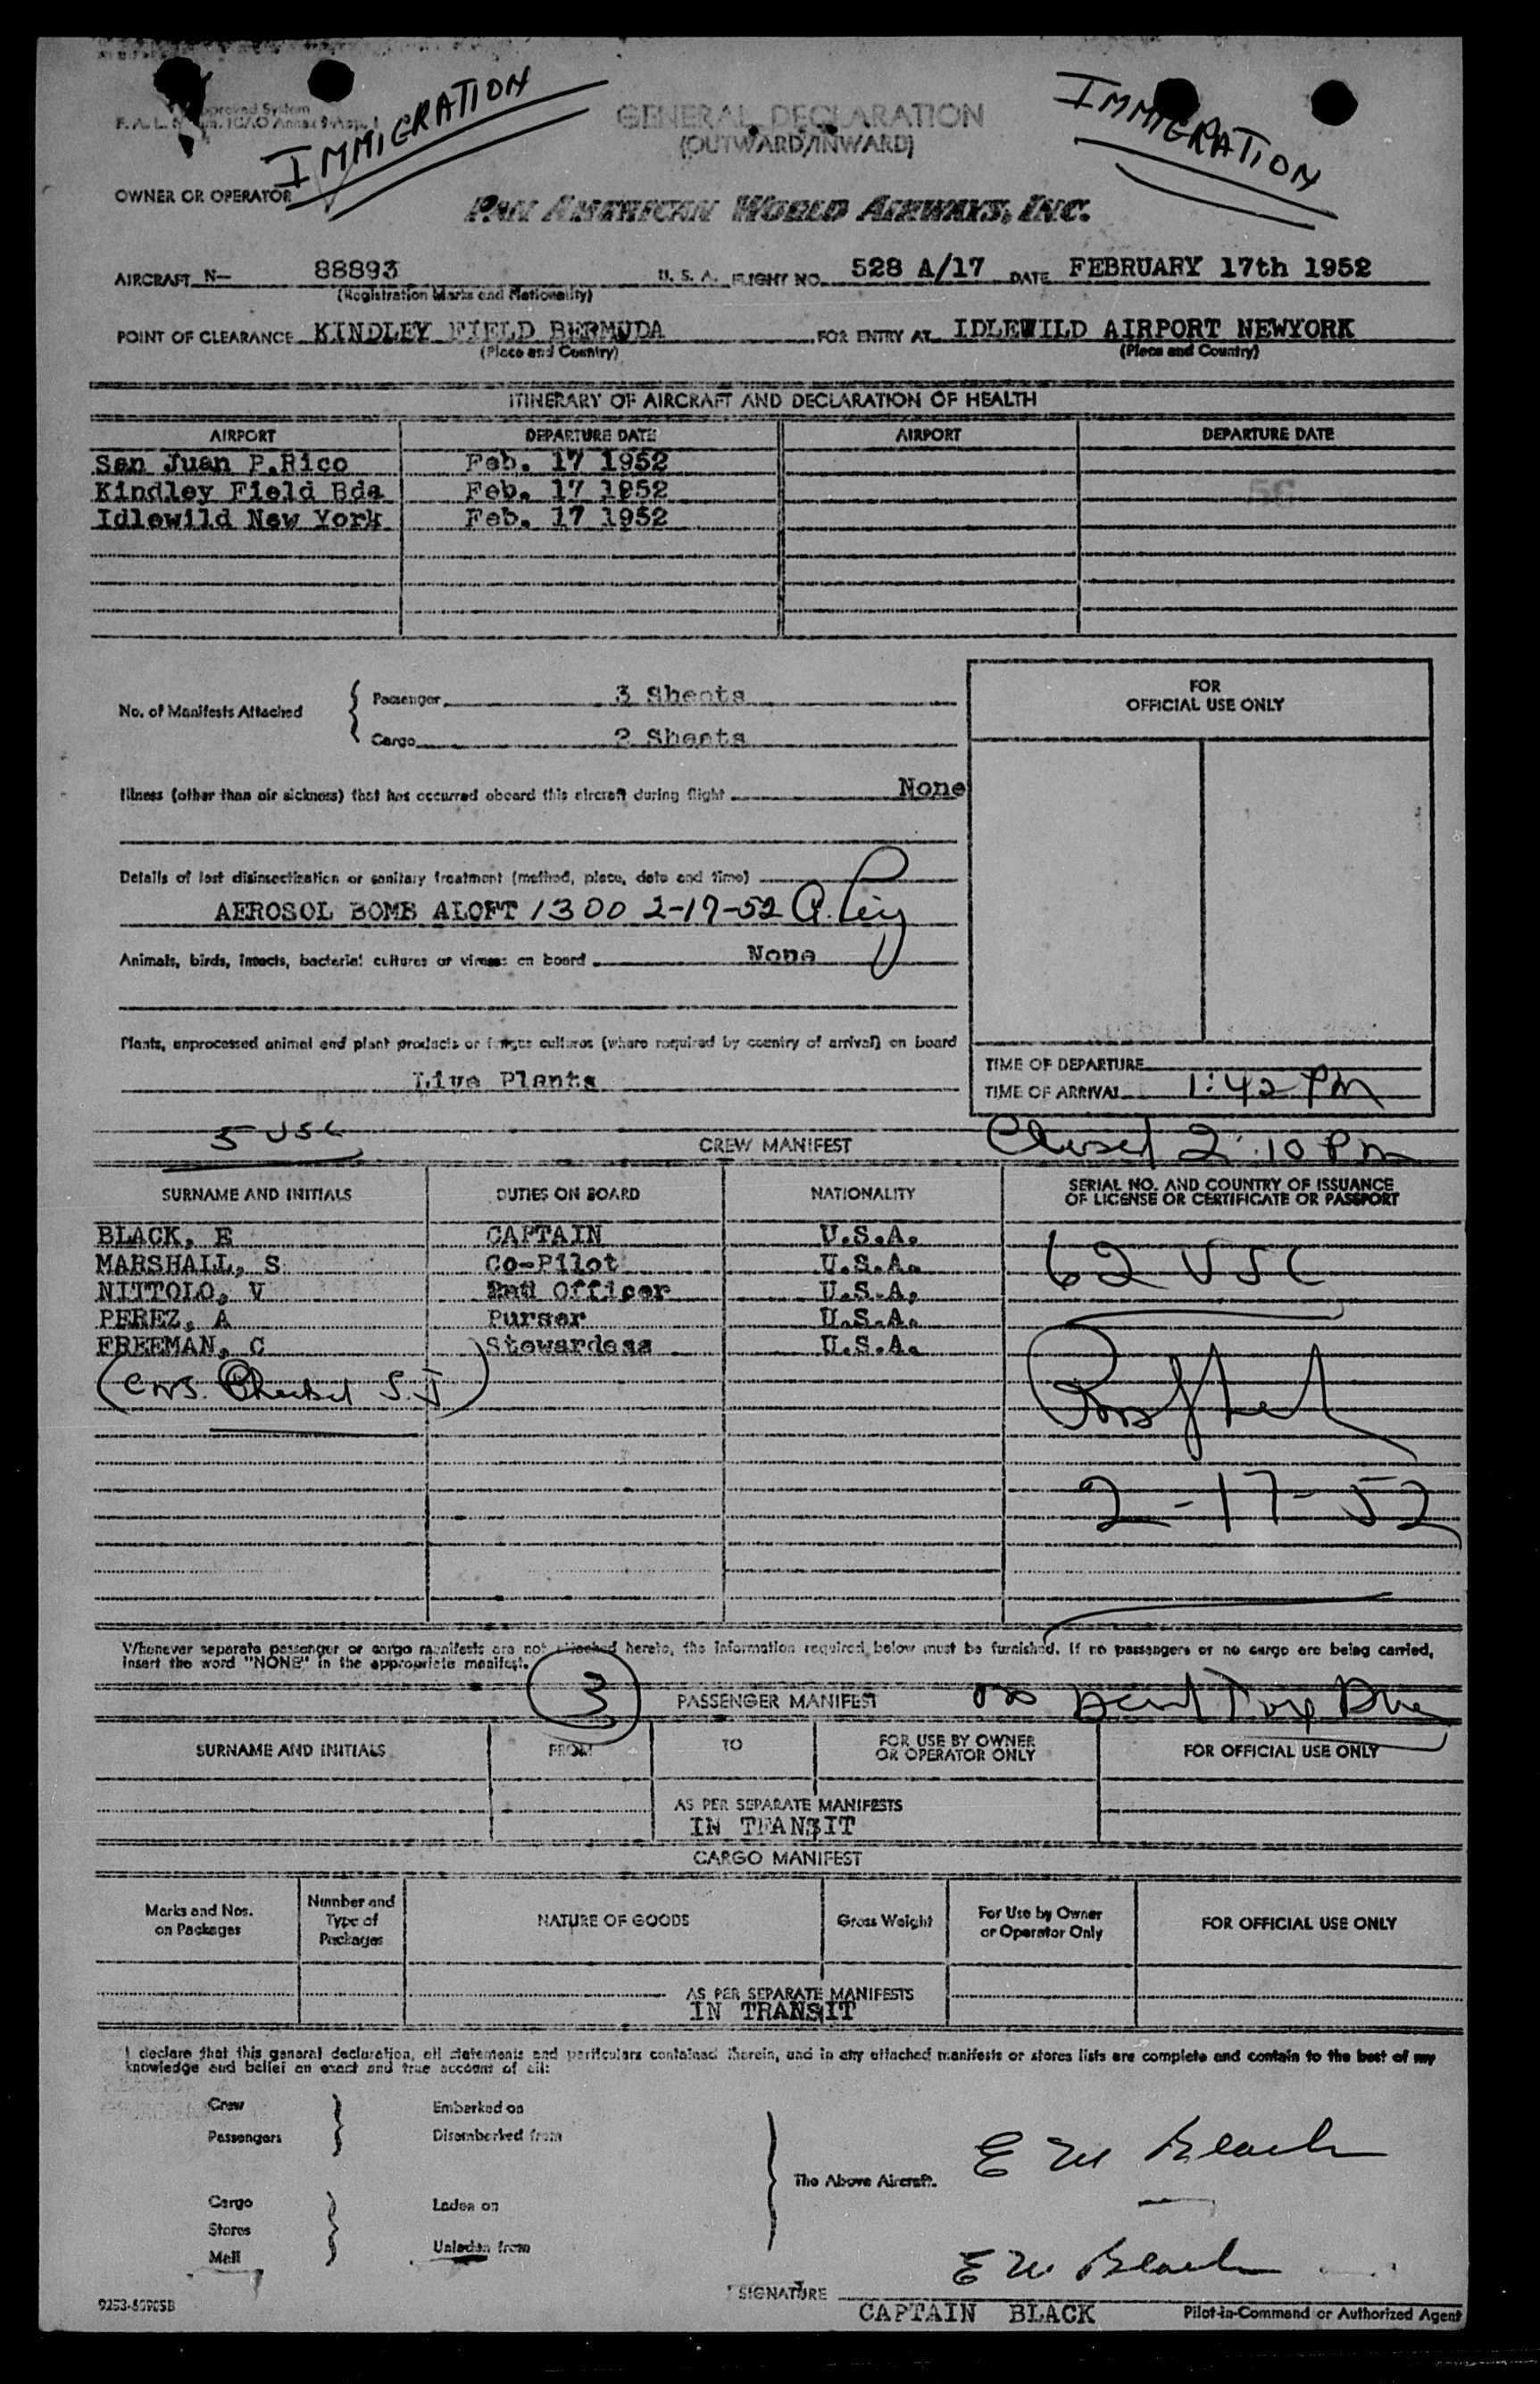 IMMIGRATION
IMMIGRATION
GENERAL DECLARATION
(OUTWARD/INWARD)
OWNER OR OPERATOR
PAN AMERICAN WORLD AIRWAYS, INC.
AIRCRAFT N- 88893 U. S. A. FLIGHT NO. 528 A/17 DATE FEBRUARY 17th 1952
(Registration Marks and Nationality)
POINT OF CLEARANCE KINDLEY FIELD BERMUDA FOR ENTRY AT IDLEWILD AIRPORT NEWYORK
(Place and Country) (Place and Country)
ITINERARY OF AIRCRAFT AND DECLARATION OF HEALTH
AIRPORT DEPARTURE DATE AIRPORT DEPARTURE DATE
San Juan P.Rico Feb. 17 1952
Kindley Field Bda Feb. 17 1952
Idlewild New York Feb. 17 1952
No. of Manifests Attached { Passenger 3 Sheets
Cargo 2 Sheets
FOR
OFFICIAL USE ONLY
Illness (other than air sickness) that has occurred aboard this aircraft during flight None
Details of last disinsectization or sanitary treatment (method, place, date and time)
AEROSOL BOMB ALOFT 1300 2-17-52
Animals, birds, insects, bacterial cultures or viruses on board None
Plants, unprocessed animal and plant products or fungus cultures (where required by country of arrival) on board
Live Plants
TIME OF DEPARTURE
TIME OF ARRIVAL 1:42 PM
5 USC CREW MANIFEST Closed 2:10 PM
SURNAME AND INITIALS DUTIES ON BOARD NATIONALITY SERIAL NO. AND COUNTRY OF ISSUANCE
OF LICENSE OR CERTIFICATE OR PASSPORT
BLACK, E CAPTAIN U.S.A.
MARSHALL, S Co-Pilot U.S.A.
62 USC
NITTOLO, V Officer U.S.A.
PEREZ, A Purser U.S.A.
FREEMAN, C Stewardess U.S.A.
S.J
2-17-52
Whenever separate passenger or cargo manifests are not attached hereto, the information required below must be furnished. If no passengers or no cargo are being carried,
insert the word "NONE" in the appropriate manifest.
3 PASSENGER MANIFEST no Head Tax Due
SURNAME AND INITIALS FROM TO FOR USE BY OWNER
OR OPERATOR ONLY FOR OFFICIAL USE ONLY
AS PER SEPARATE MANIFESTS
IN TRANSIT
CARGO MANIFEST
Marks and Nos.
on Packages Number and
Type of
Packages NATURE OF GOODS Gross Weight For Use by Owner
or Operator Only FOR OFFICIAL USE ONLY
AS PER SEPARATE MANIFESTS
IN TRANSIT
I declare that this general declaration, all statements and particulars contained therein, and in any attached manifests or stores lists are complete and contain to the best of my
knowledge and belief an exact and true account of all:
Crew Embarked on
Passengers Disembarked from
The Above Aircraft.
E W Black
Cargo Laden on
Stores
Mail Unladen from
E W Black
SIGNATURE
CAPTAIN BLACK Pilot-in-Command or Authorized Agent